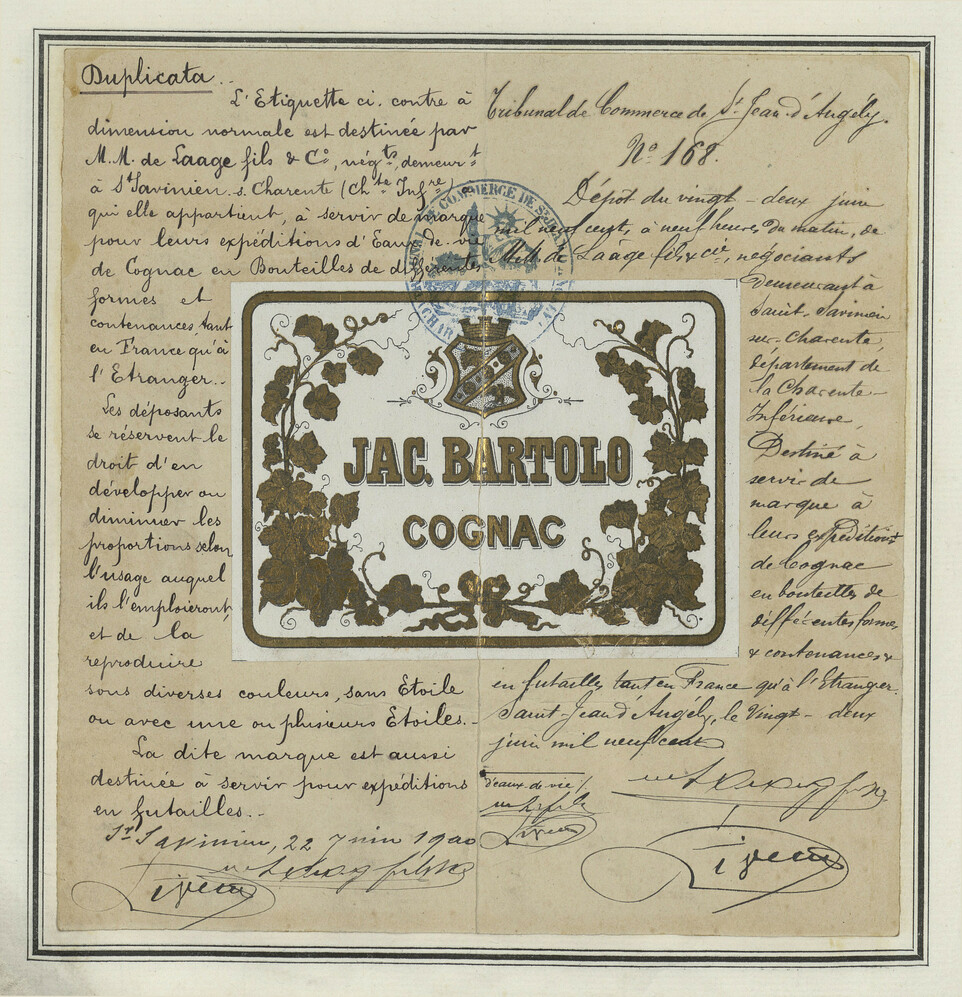 Duplicata
L'Etiquette ci. contre à
dimension normale est destinée par
M.M. de Laage fils & Cº, négts, demeurt
à St Savinien s. Charente (Chte Infre)
qui elle appartient, à servir de marque
pour leurs expéditions d'Eaux-de-vie
de Cognac en Bouteilles de différentes
formes et
contenances, tant
en France qu'à
l'Etranger.
Les déposants
se réservent le
droit d'en
développer ou
diminuer les
proportions selon
l'usage auquel
ils l'emploieront,
et de la
reproduire
sous diverses couleurs, sans Etoile
ou avec une ou plusieurs Etoiles.
La dite marque est aussi
destinée à servir pour expéditions
en futailles.
St Savinien, 22 Juin 1900
Tribunal de Commerce de St Jean d'Angély.
Nº 168.
Dépot du vingt-deux juin
mil neuf cent, à neuf heures du matin, de
M.M. de Laage fils & cie, négociants
Demeurant à
Saint-Savinien
sur-Charente,
département de
la Charente-
Inférieure,
Destiné à
servir de
marque à
leurs expéditions
de Cognac
en bouteilles de
différentes formes
& contenances &
en futailles tant en France qu'à l'Etranger.
Saint-Jean d'Angély, le Vingt-deux
juin mil neuf cent
d'eaux de vie/
COMMERCE DE St JEAN
JAC. BARTOLO
COGNAC